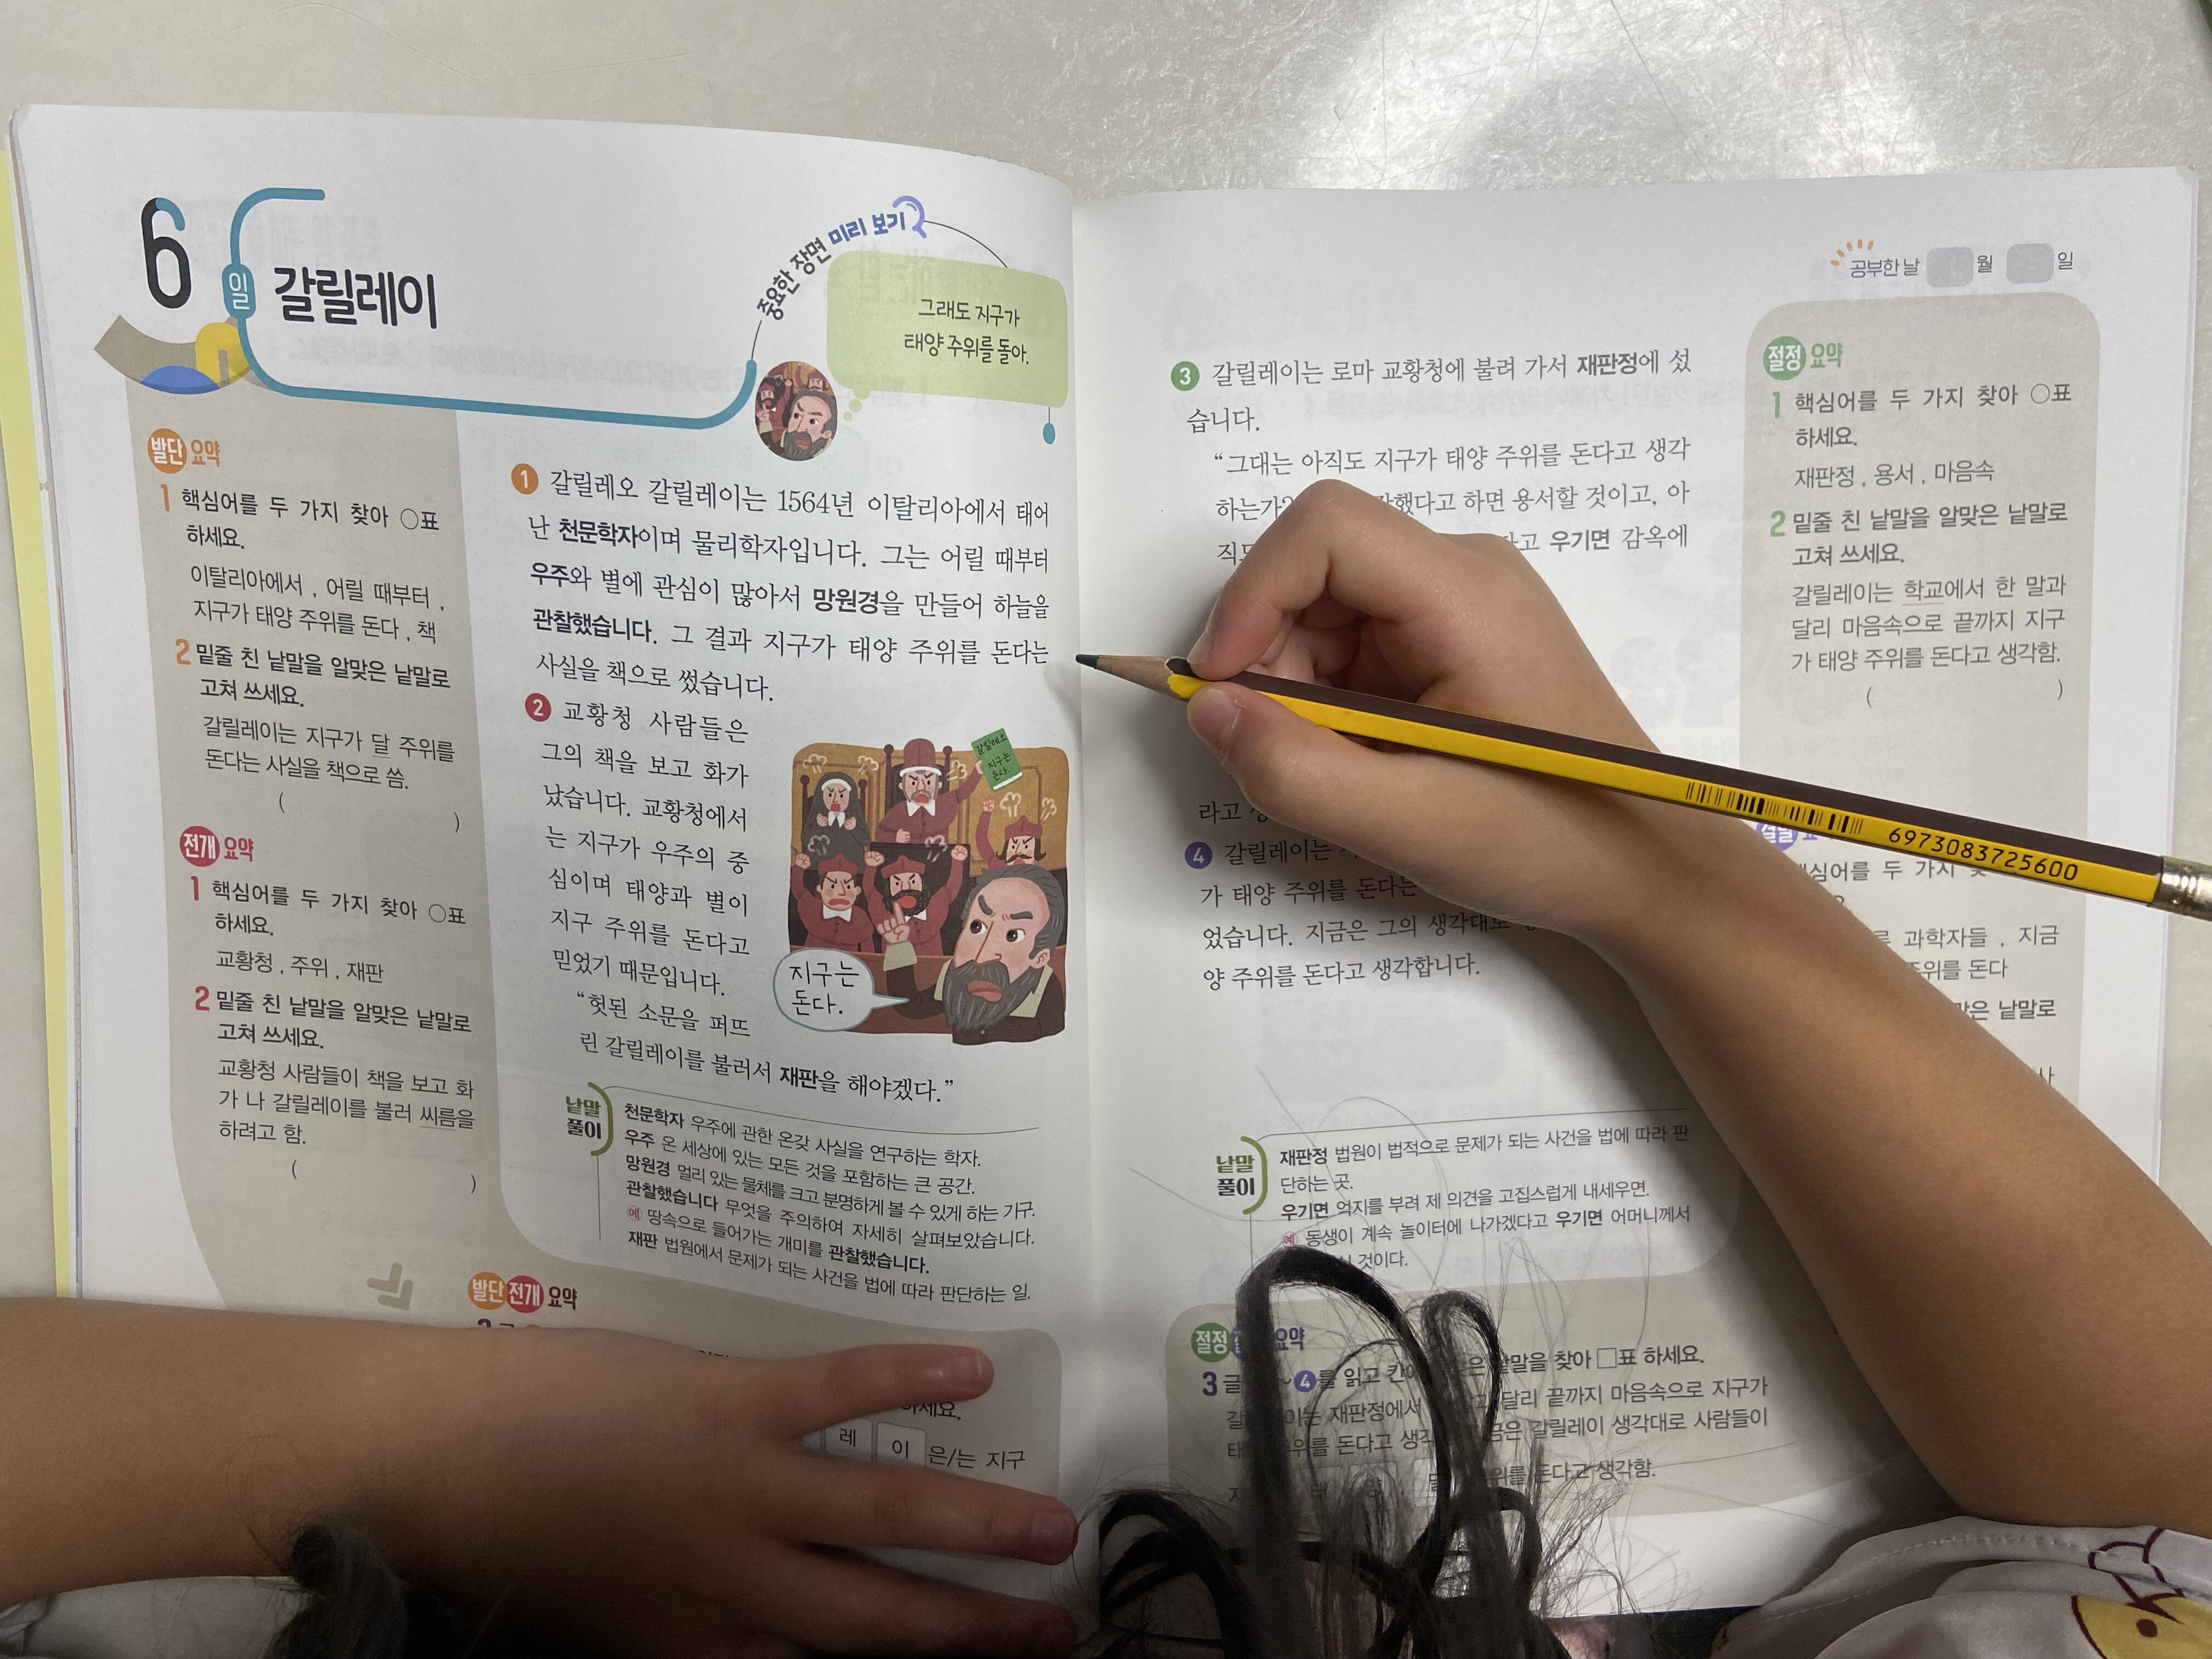 6
일
갈릴레이
중요한 장면 미리 보기
그래도 지구가
태양 주위를 돌아.
발단 요약
1 핵심어를 두 가지 찾아 ○표
하세요.
이탈리아에서 , 어릴 때부터 ,
지구가 태양 주위를 돈다 , 책
2 밑줄 친 낱말을 알맞은 낱말로
고쳐 쓰세요.
갈릴레이는 지구가 달 주위를
돈다는 사실을 책으로 씀.
( )
전개 요약
1 핵심어를 두 가지 찾아 ○표
하세요.
교황청 , 주위 , 재판
2 밑줄 친 낱말을 알맞은 낱말로
고쳐 쓰세요.
교황청 사람들이 책을 보고 화
가 나 갈릴레이를 불러 씨름을
하려고 함.
( )
1 갈릴레오 갈릴레이는 1564년 이탈리아에서 태어
난 천문학자이며 물리학자입니다. 그는 어릴 때부터
우주와 별에 관심이 많아서 망원경을 만들어 하늘을
관찰했습니다. 그 결과 지구가 태양 주위를 돈다는
사실을 책으로 썼습니다.
2 교황청 사람들은
그의 책을 보고 화가
났습니다. 교황청에서
는 지구가 우주의 중
심이며 태양과 별이
지구 주위를 돈다고
믿었기 때문입니다.
“헛된 소문을 퍼뜨
린 갈릴레이를 불러서 재판을 해야겠다.”
갈릴레오
지구는
돈다.
지구는
돈다.
낱말
풀이
천문학자 우주에 관한 온갖 사실을 연구하는 학자.
우주 온 세상에 있는 모든 것을 포함하는 큰 공간.
망원경 멀리 있는 물체를 크고 분명하게 볼 수 있게 하는 기구.
관찰했습니다 무엇을 주의하여 자세히 살펴보았습니다.
예 땅속으로 들어가는 개미를 관찰했습니다.
재판 법원에서 문제가 되는 사건을 법에 따라 판단하는 일.
발단 전개 요약
하세요.
레 이 은/는 지구
공부한 날 월 일
3 갈릴레이는 로마 교황청에 불려 가서 재판정에 섰
습니다.
“그대는 아직도 지구가 태양 주위를 돈다고 생각
하는가? 했다고 하면 용서할 것이고, 아
직도 고 우기면 감옥에
라고
4 갈릴레이는
가 태양 주위를 돈다는
었습니다. 지금은 그의 생각대로
양 주위를 돈다고 생각합니다.
낱말
풀이
재판정 법원이 법적으로 문제가 되는 사건을 법에 따라 판
단하는 곳.
우기면 억지를 부려 제 의견을 고집스럽게 내세우면.
예 동생이 계속 놀이터에 나가겠다고 우기면 어머니께서
것이다.
절정 요약
1 핵심어를 두 가지 찾아 ○표
하세요.
재판정 , 용서 , 마음속
2 밑줄 친 낱말을 알맞은 낱말로
고쳐 쓰세요.
갈릴레이는 학교에서 한 말과
달리 마음속으로 끝까지 지구
가 태양 주위를 돈다고 생각함.
( )
6973083725600
핵심어를 두 가지
과학자들 , 지금
주위를 돈다
낱말로
절정 요약
3 글 4를 읽고 낱말을 찾아 □표 하세요.
재판정에서 달리 끝까지 마음속으로 지구가
주위를 돈다고 갈릴레이 생각대로 사람들이
태 양 주위를 돈다고 생각함.